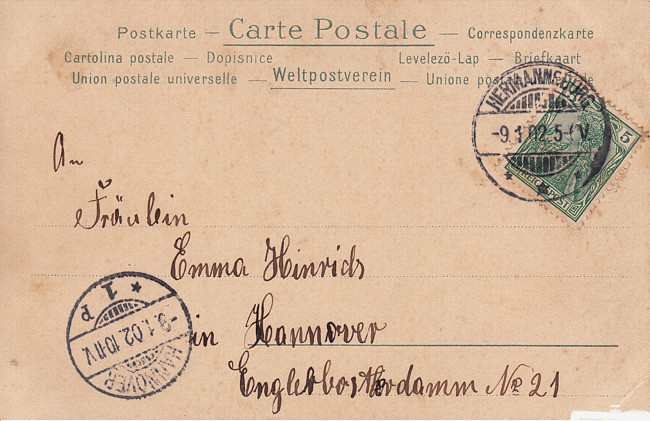 Postkarte — Carte Postale — Correspondenzkarte
Cartolina postale — Dopisnice Levelező-Lap — Briefkaart
Union postale universelle — Weltpostverein — Unione postale
HERMANNSBURG
-9.1.02.5-6V
5
REICHSPOST
An
Fräulein
Emma Hinrichs
in Hannover
Englerbostelerdamm № 21
1. P
-9.1.02.10-11V.
HANNOVER